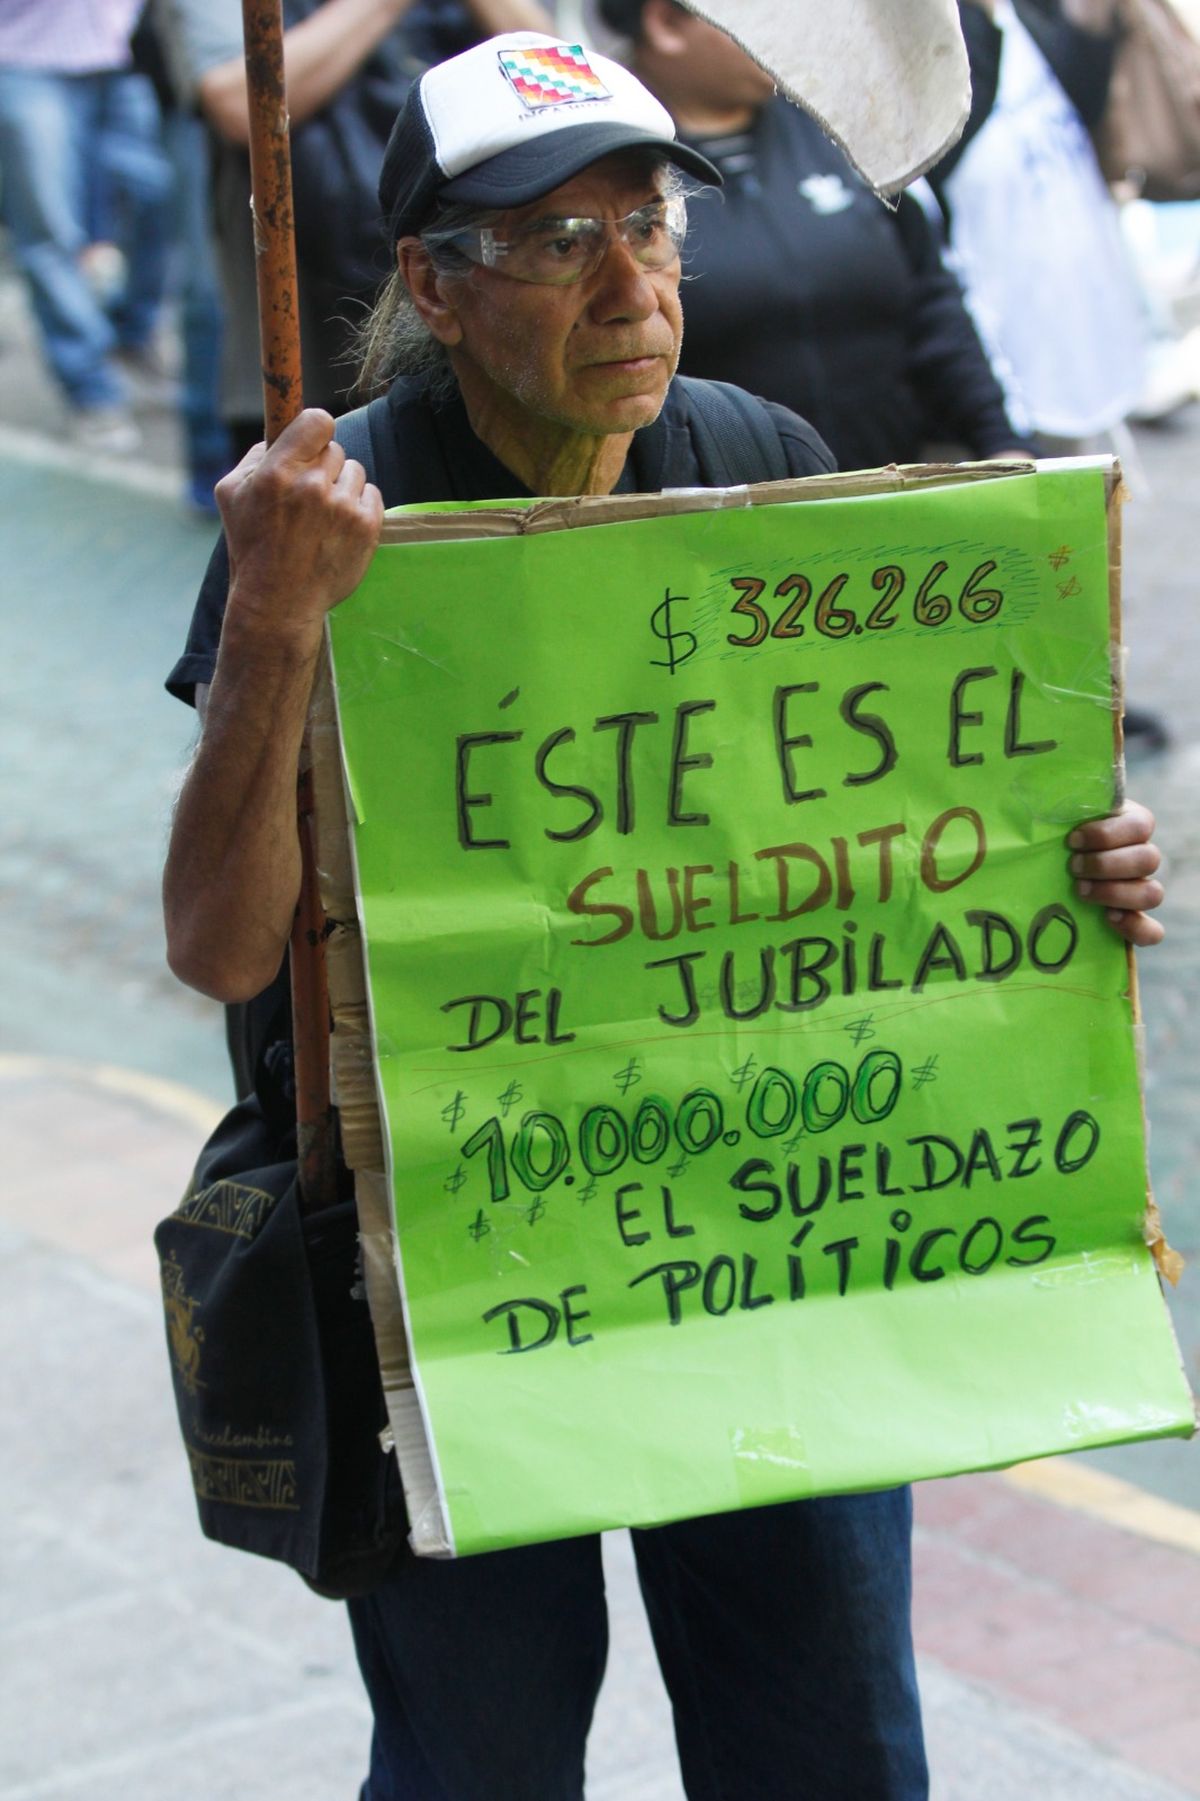 $ 326.266 $ $
ÉSTE ES EL
SUELDITO
DEL JUBILADO
$ $ $ $ $
10.000.000 $
$ $ $ $ $ $
EL SUELDAZO
DE POLÍTICOS